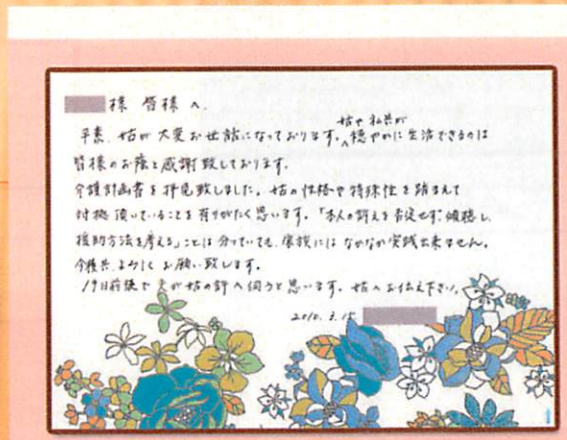 様 皆様へ.
平素、姑が大変お世話になっております。姑や私共が穏やかに生活できるのは
皆様のお蔭と感謝致しております。
介護計画書を拝見致しました。姑の性格や特殊性を踏まえて
対処頂いていることを有りがたく思います。「本人の訴えを否定せず、傾聴し、
援助方法を考える」ことは分っていても、家族にはなかなか実践出来ません。
今後共、よろしくお願い致します。
19日前後で夫が姑の許へ伺うと思います。姑へお伝え下さい。
2010.3.15